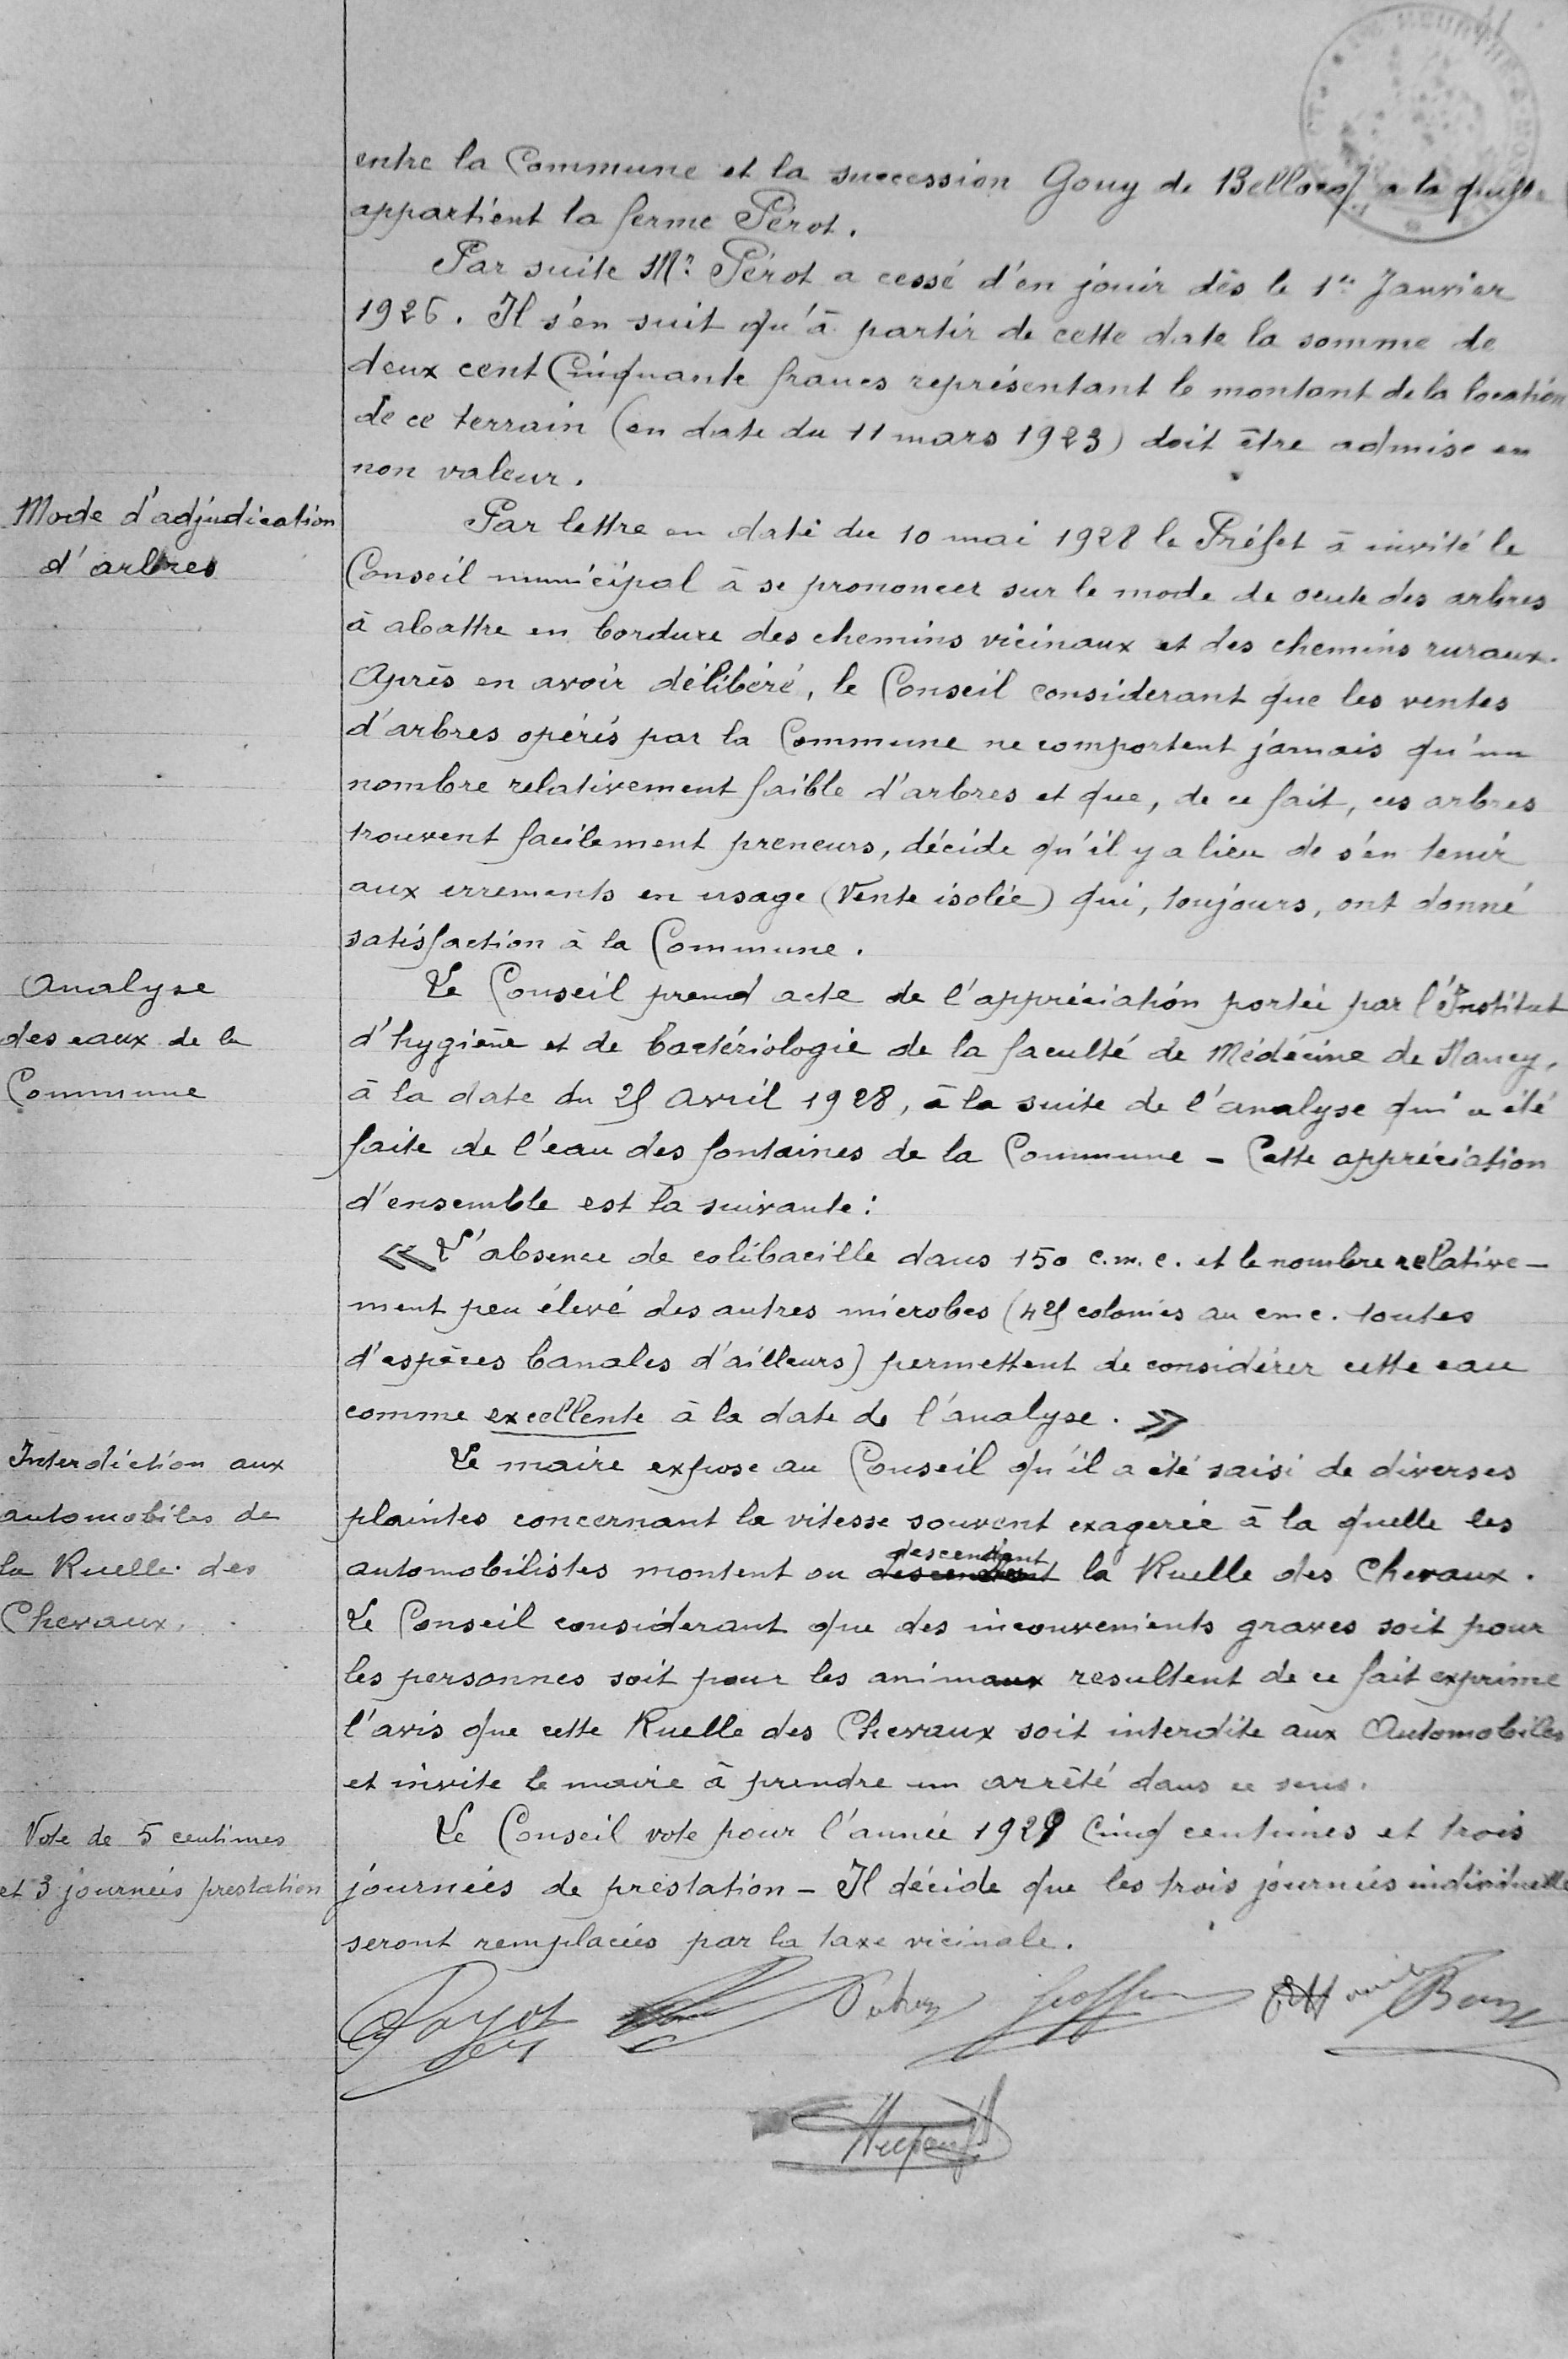 entre la Commune et la succession Gouy de Bellocq, a la quelle
appartient la ferme Pérot.
Par suite Mr Pérot a cessé d'en jouir dès le 1er Janvier
1926. Il s'en suit qu'à partir de cette date la somme de
deux cent Cinquante francs représentant le montant de la location
de ce terrain (en date du 11 mars 1923) doit être admise en
non valeur.
Mode d'adjudication
d'arbres
Par lettre en date du 10 mai 1928 le Préfet à invité le
Conseil municipal à se prononcer sur le mode de vente des arbres
à abattre en bordure des chemins vicinaux et des chemins ruraux.
Après en avoir délibéré, le Conseil considerant que les ventes
d'arbres opérés par la Commune ne comportent jamais qu'un
nombre relativement faible d'arbres et que, de ce fait, ces arbres
trouvent facilement preneurs, décide qu'il y a lieu de s'en tenir
aux errements en usage (Vente isolée) qui, toujours, ont donné
satisfaction à la Commune.
Analyse
des eaux de la
Commune
Le Conseil prend acte de l'appréciation portée par l'Institut
d'hygiène et de bactériologie de la faculté de Médécine de Nancy,
à la date du Avril 1928, à la suite de l'analyse qui a été
faite de l'eau des fontaines de la Commune - Cette appréciation
d'ensemble est la suivante:
« L'absence de colibacille dans 150 c.m.c. et le nombre relative-
ment peu élevé des autres microbes ( colonies au cmc. toutes
d'espèces banales d'ailleurs) permettent de considérer cette eau
comme excellente à la date de l'analyse. »
Interdiction aux
automobiles de
la Ruelle des
Chevaux.
Le maire expose au Conseil qu'il a été saisi de diverses
plaintes concernant la vitesse souvent exagerée à la quelle les
automobilistes montent ou descendent la Ruelle des Chevaux.
Le Conseil considerant que des inconvenients graves soit pour
les personnes soit pour les animaux resultent de ce fait exprime
l'avis que cette Ruelle des Chevaux soit interdite aux Automobiles
et invite le maire à prendre un arrêté dans ce sens.
Vote de 5 centimes
et 3 journées prestation
Le Conseil vote pour l'année 1929 Cinq centimes et trois
journées de prestation - Il décide que les trois journées individuelles
seront remplacées par la taxe vicinale.